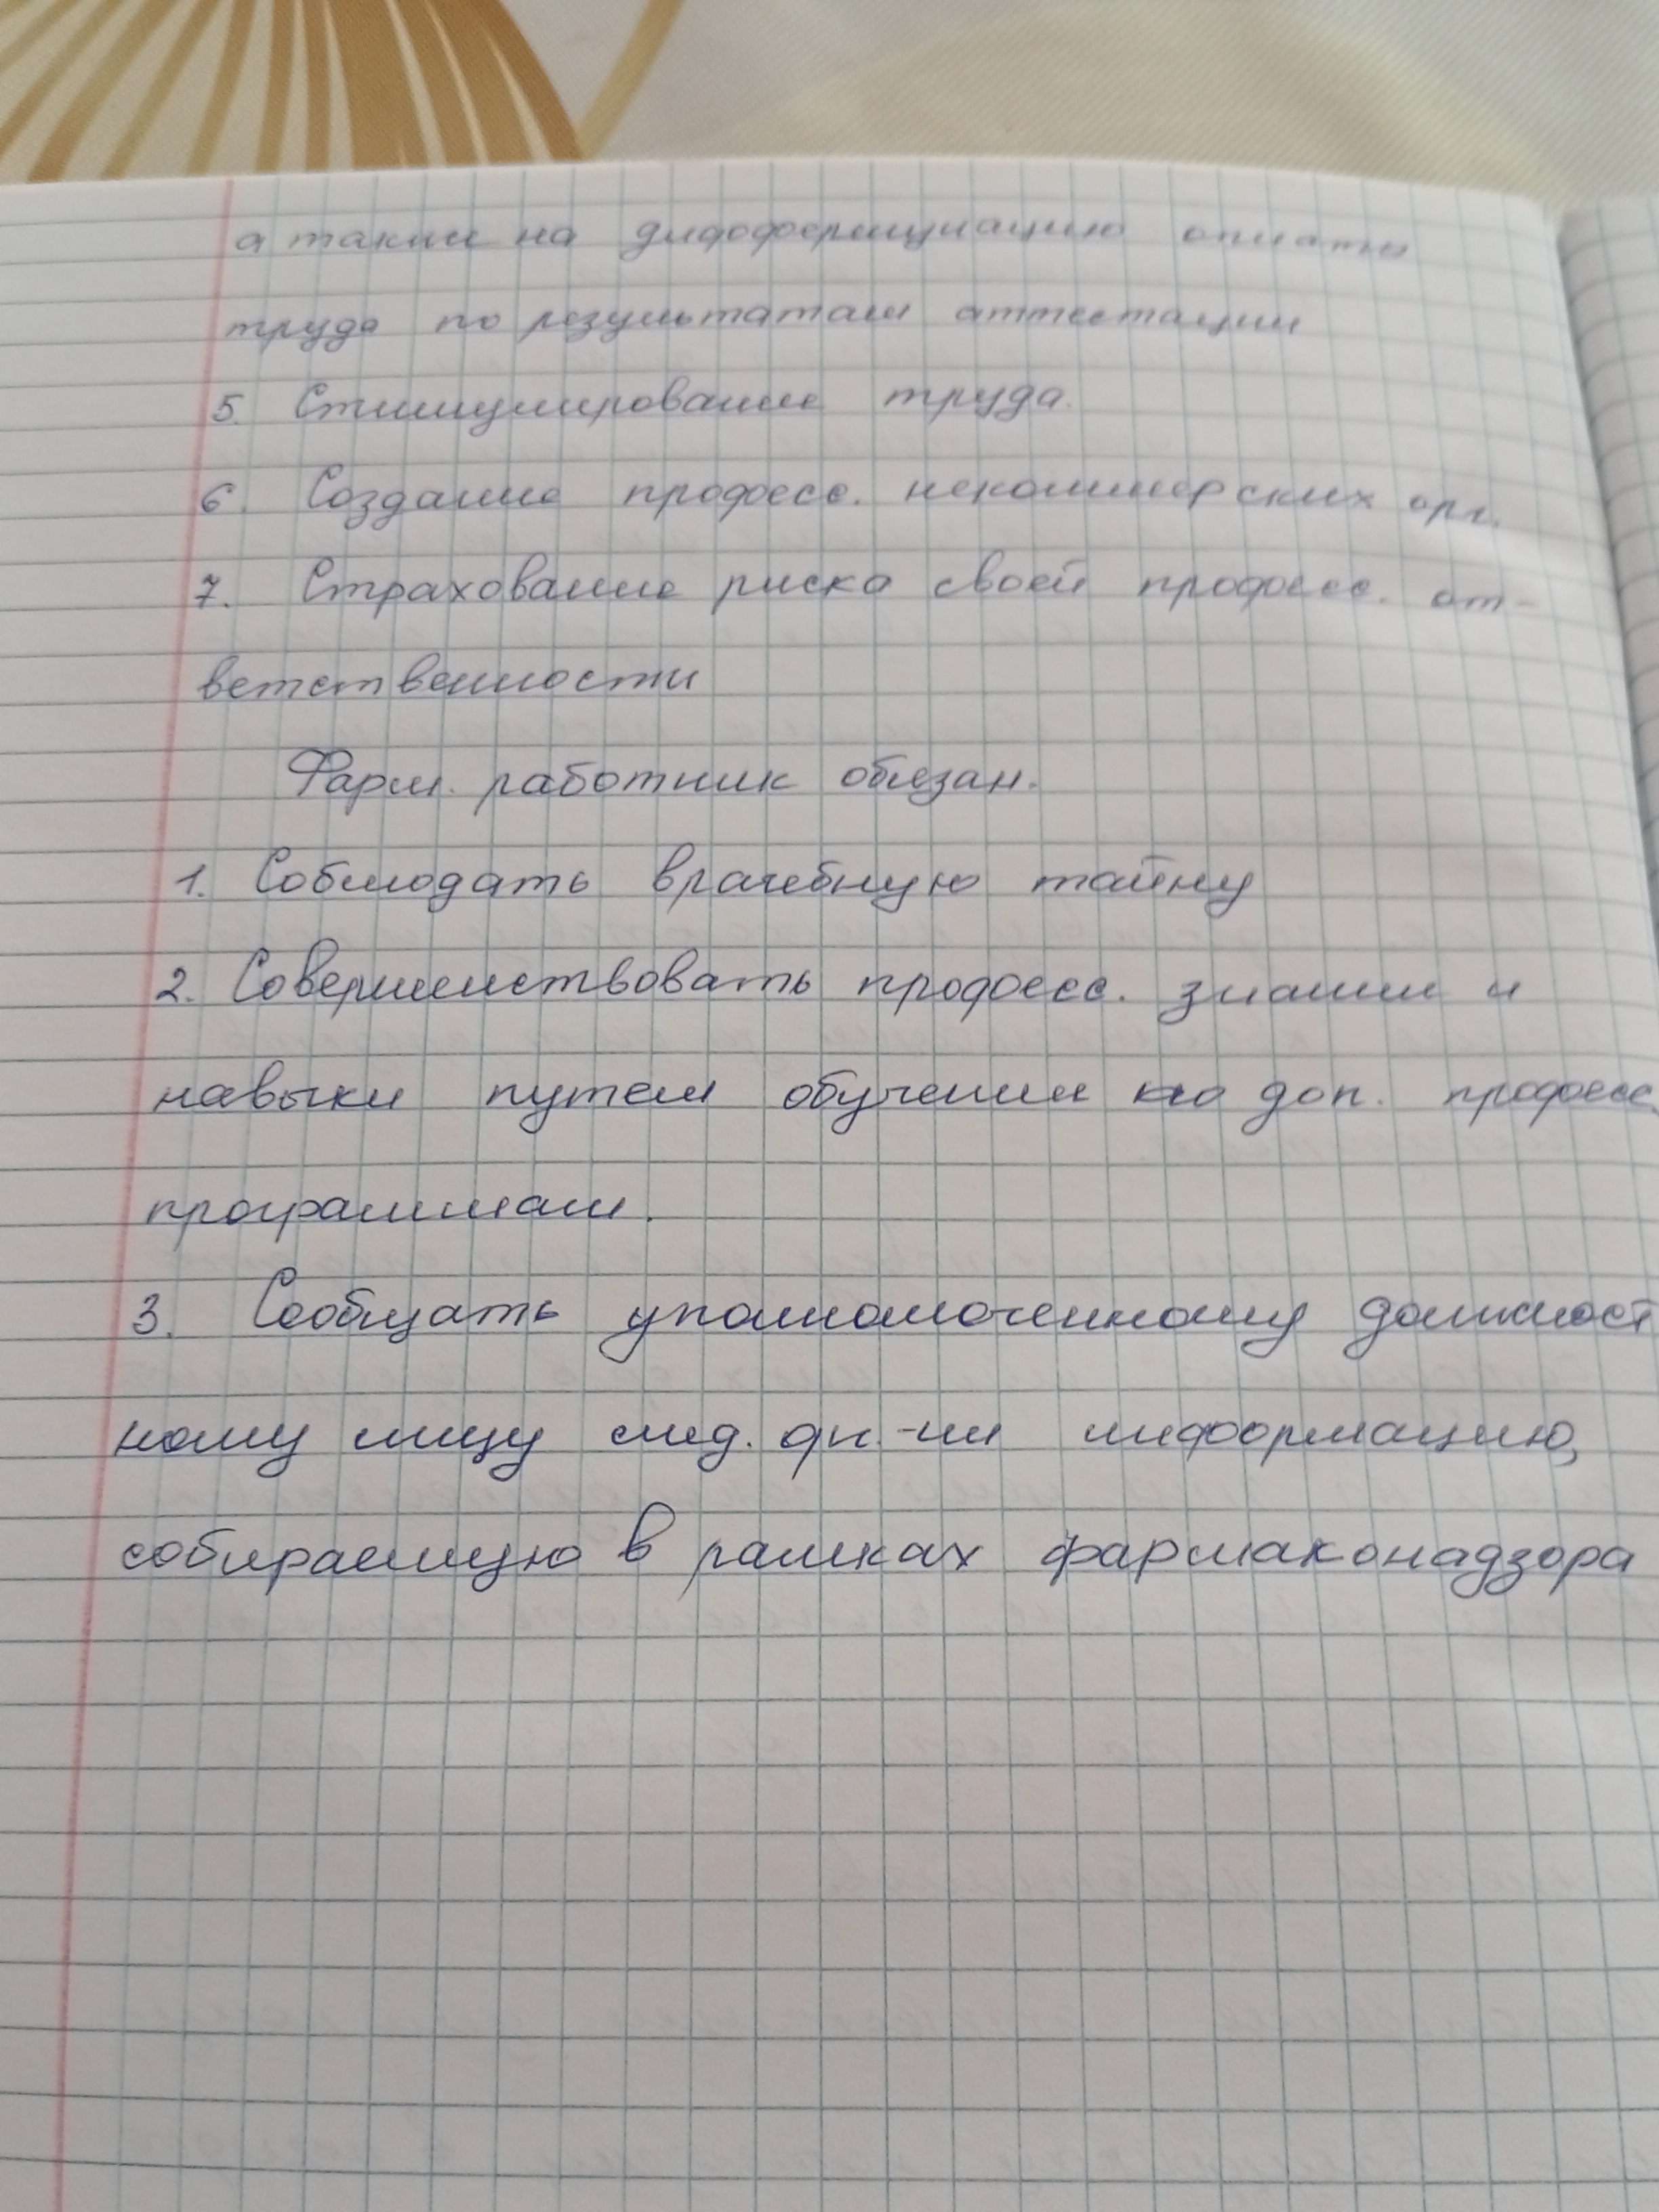 а также на дифференциацию оплаты
труда по результатам аттестации
5. Стимулирование труда.
6. Создание професс. некоммерских орг.
7. Страхование риска своей професс. от-
ветственности
Фарм. работник обязан.
1. Соблюдать врачебную тайну
2. Совершенствовать професс. знания и
навыки путем обучения по доп. професс.
программам.
3. Сообщать уполномоченному должност
ному лицу мед. орг-ии информацию,
собираемую в рамках фармаконадзора